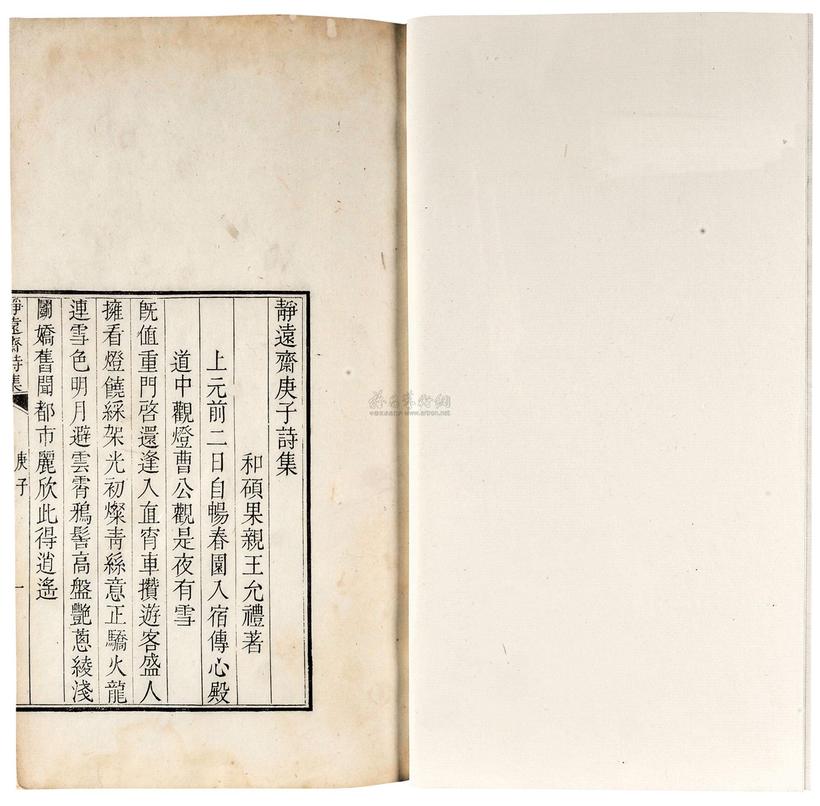 靜遠齋庚子詩集
和碩果親王允禮著
上元前二日自暢春園入宿傳心殿
道中觀燈曹公觀是夜有雪
旣值重門啓還逢入直宵車攢遊客盛人
擁看燈饒綵架光初燦靑絲意正驕火龍
連雪色明月避雲霄鴉髻高盤艷蔥綾淺
鬬嬌舊聞都市麗欣此得逍遙
靜遠齋詩集
庚子
一
www.artron.net